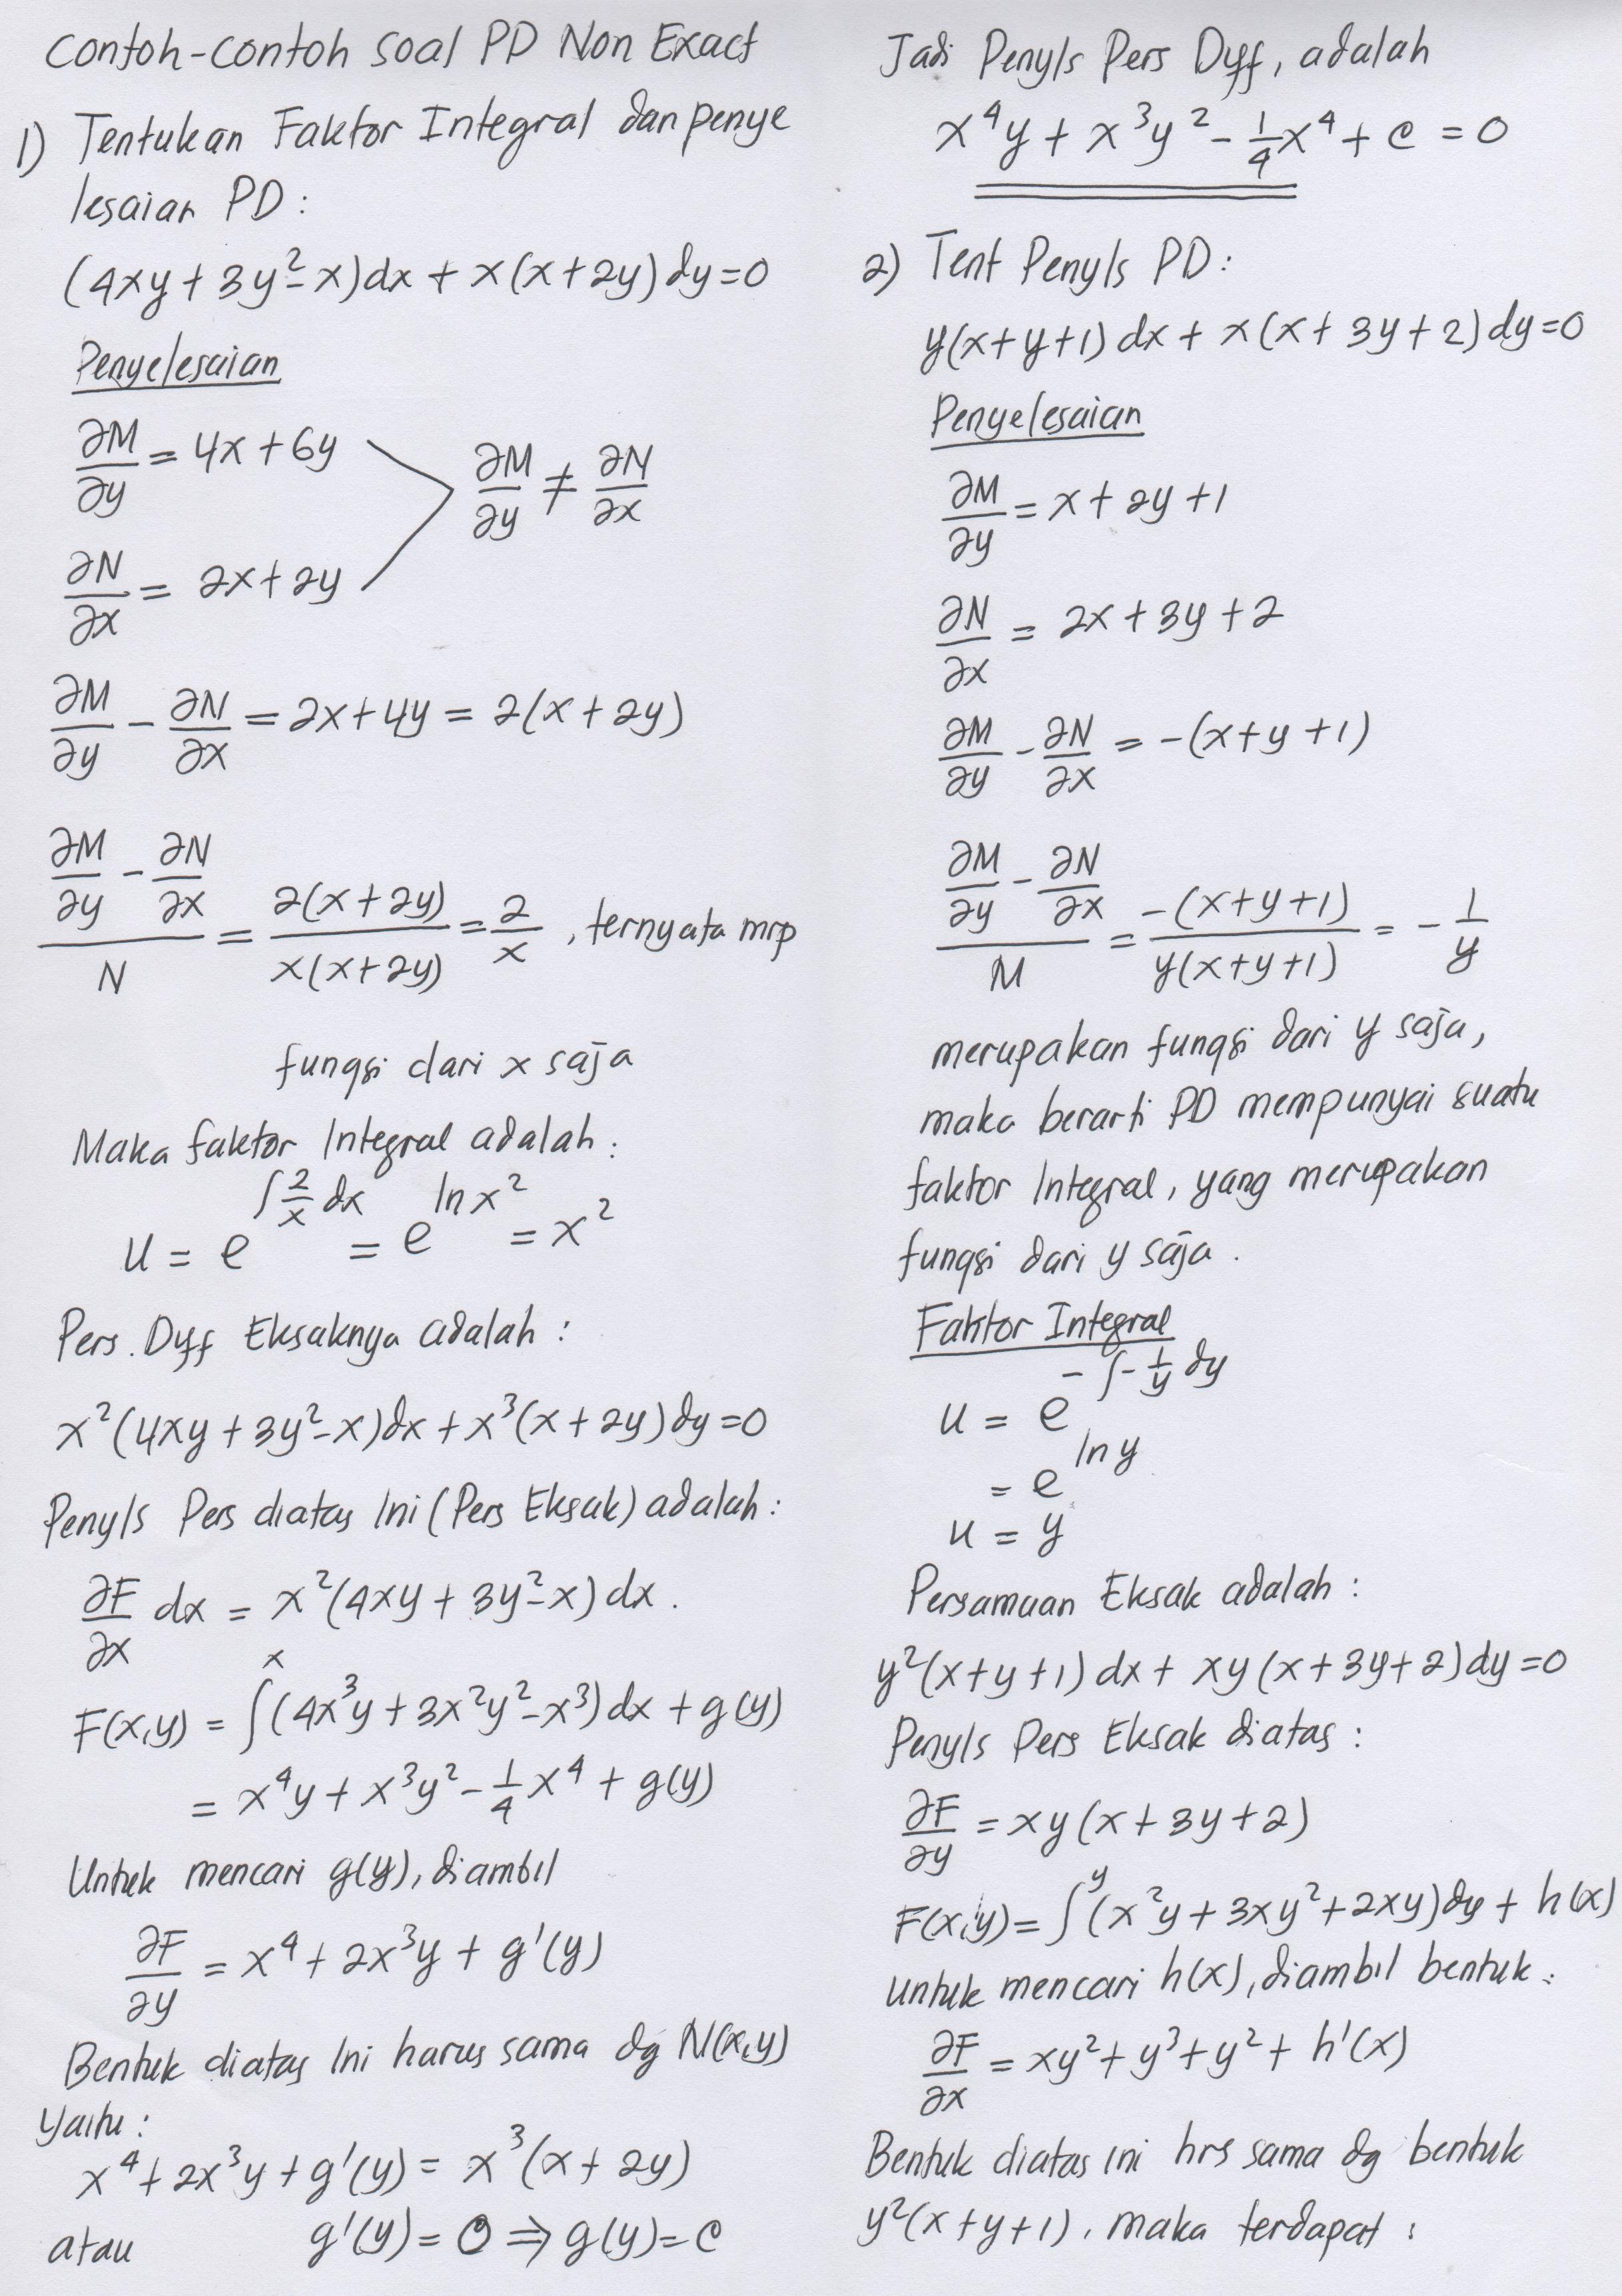 Contoh-contoh soal PD Non Exact
1) Tentukan Faktor Integral dan penye
lesaian PD :
(4xy + 3y² - x)dx + x(x + 2y)dy = 0
Penyelesaian
∂M/∂y = 4x + 6y
∂M/∂y ≠ ∂N/∂x
∂N/∂x = 2x + 2y
∂M/∂y - ∂N/∂x = 2x + 4y = 2(x + 2y)
(∂M/∂y - ∂N/∂x)/N = 2(x + 2y)/x(x + 2y) = 2/x , ternyata mrp
fungsi dari x saja
Maka faktor Integral adalah :
u = e^(∫ 2/x dx) = e^(ln x²) = x²
Pers. Dyff Eksaknya adalah :
x²(4xy + 3y² - x)dx + x³(x + 2y)dy = 0
Penyls Pers diatas Ini (Pers Eksak) adalah :
∂F/∂x dx = x²(4xy + 3y² - x) dx .
F(x,y) = ∫^x (4x³y + 3x²y² - x³) dx + g(y)
= x⁴y + x³y² - 1/4 x⁴ + g(y)
Untuk mencari g(y), diambil
∂F/∂y = x⁴ + 2x³y + g'(y)
Bentuk diatas Ini harus sama dg N(x,y)
Yaitu :
x⁴ + 2x³y + g'(y) = x³(x + 2y)
atau g'(y) = 0 ⇒ g(y) = c
Jadi Penyls Pers Dyff, adalah
x⁴y + x³y² - 1/4 x⁴ + c = 0
2) Tent Penyls PD :
y(x + y + 1) dx + x(x + 3y + 2) dy = 0
Penyelesaian
∂M/∂y = x + 2y + 1
∂N/∂x = 2x + 3y + 2
∂M/∂y - ∂N/∂x = -(x + y + 1)
(∂M/∂y - ∂N/∂x)/M = -(x + y + 1)/y(x + y + 1) = - 1/y
merupakan fungsi dari y saja,
maka berarti PD mempunyai suatu
faktor Integral, yang merupakan
fungsi dari y saja .
Faktor Integral
u = e^(-∫ -1/y dy)
= e^(ln y)
u = y
Persamaan Eksak adalah :
y²(x + y + 1) dx + xy(x + 3y + 2)dy = 0
Penyls Pers Eksak diatas :
∂F/∂y = xy(x + 3y + 2)
F(x,y) = ∫^y (x²y + 3xy² + 2xy)dy + h(x)
untuk mencari h(x), diambil bentuk :
∂F/∂x = xy² + y³ + y² + h'(x)
Bentuk diatas Ini hrs sama dg bentuk
y²(x + y + 1), maka terdapat :